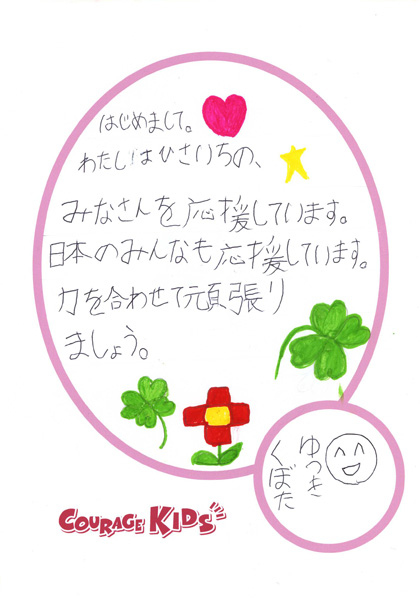 はじめまして。
わたしはひさいちの、
みなさんを応援しています。
日本のみんなも応援しています。
力を合わせて頑張り
ましょう。
ゆづき
くぼた
COURAGE KIDS